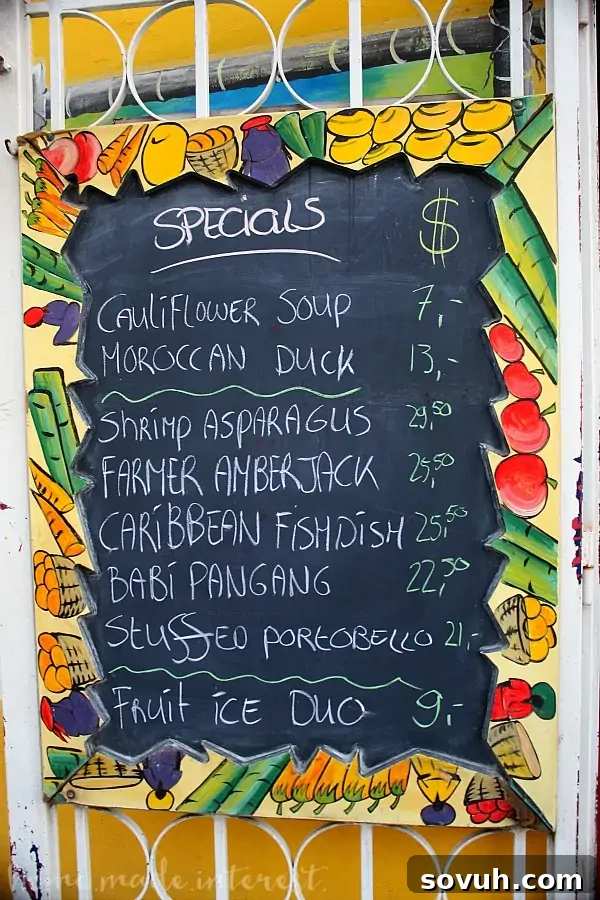 SPECiALS $
CAULiFLOWER SOUP 7,-
MOROCCAN DUCK 13,-
Shrimp ASPARAGUS 29,50
FARMER AMBERJACK 25,50
CARiBBEAN FiSHDiSH 25,50
BABi PANGANG 22,50
STUffED PORTOBELLO 21,-
Fruit iCE DUO 9,-
made.interest.
sovuh.com